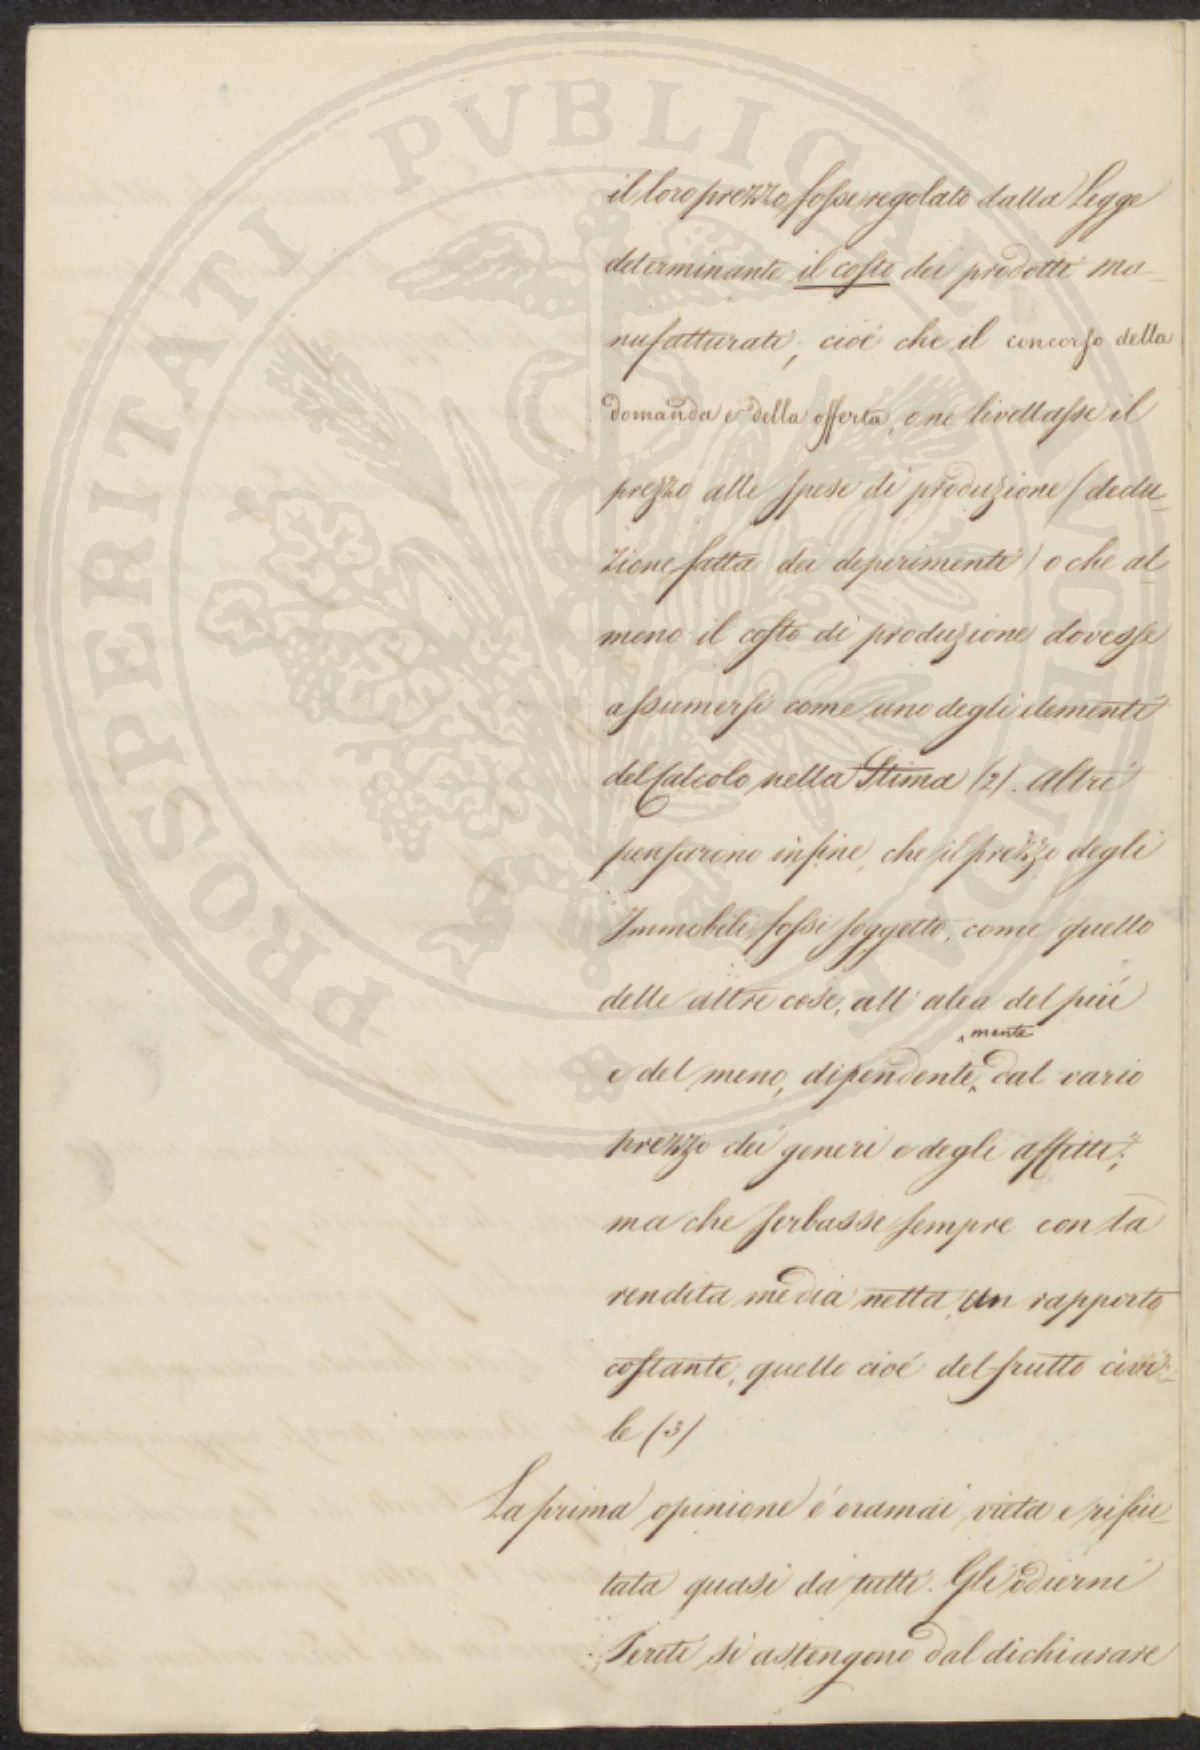 il loro prezzo fosse regolato dalla Legge
determinante il costo dei prodotti ma-
nufatturati, cioè che il concorso della
domanda e della offerta, ne livellasse il
prezzo alle spese di produzione (dedu-
zione fatta dei deperimenti) o che al-
meno il costo di produzione dovesse
assumersi come uno degli elementi
del Calcolo nella Stima (2). Altri
pensarono infine, che il prezzo degli
Immobili fossi soggetto, come quello
delle altre cose, all'alea del più
e del meno, dipendentemente dal vario
prezzo dei generi e degli affitti;
ma che serbasse sempre con la
rendita media netta un rapporto
costante, quello cioè del frutto civi-
le (3)
La prima opinione è oramai vieta e rifiu-
tata quasi da tutti. Gli odierni
Periti si astengono dal dichiarare
PROSPERITATI PVBLICAE AVGENDAE